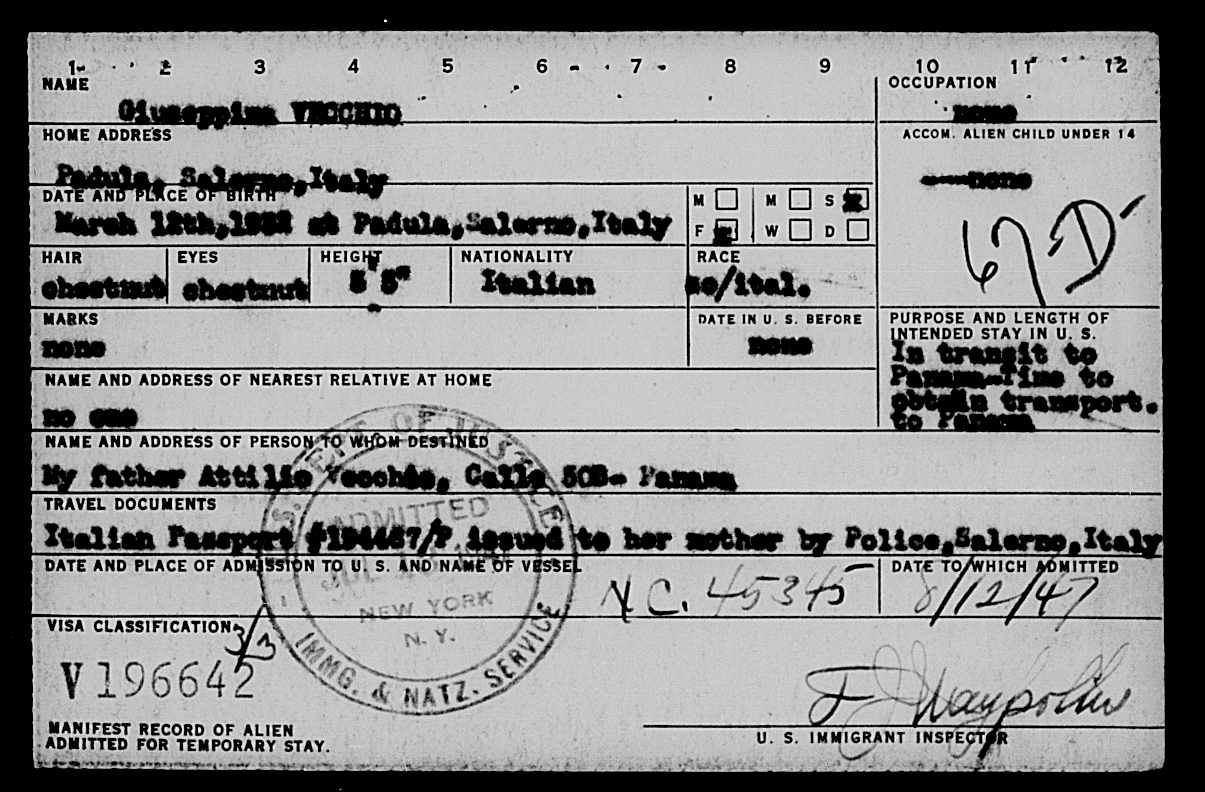 1 2 3 4 5 6 7 8 9 10 11 12
NAME
Giuseppina VECCHIO
OCCUPATION
none
HOME ADDRESS
Padula, Salerno, Italy
ACCOM. ALIEN CHILD UNDER 14
----none
DATE AND PLACE OF BIRTH
March 12th, at Padula, Salerno, Italy
M M S x
F x W D
67 D
HAIR EYES HEIGHT NATIONALITY RACE
chestnut chestnut 5'5" Italian so/ital.
MARKS
none
DATE IN U. S. BEFORE
none
PURPOSE AND LENGTH OF
INTENDED STAY IN U. S.
In transit to
Panama-Time to
obtain transport.
to Panama
NAME AND ADDRESS OF NEAREST RELATIVE AT HOME
no one
NAME AND ADDRESS OF PERSON TO WHOM DESTINED
My father Attilio Calle 50B- Panama
TRAVEL DOCUMENTS
Italian Passport #194467/P issued to her mother by Police, Salerno, Italy
DATE AND PLACE OF ADMISSION TO U. S. AND NAME OF VESSEL
N.C. 45345
DATE TO WHICH ADMITTED
8/12/47
U.S. DEPT OF JUSTICE
ADMITTED
JUL
NEW YORK
N. Y.
IMMG. & NATZ. SERVICE
VISA CLASSIFICATION
3/3
V196642
MANIFEST RECORD OF ALIEN
ADMITTED FOR TEMPORARY STAY.
U. S. IMMIGRANT INSPECTOR